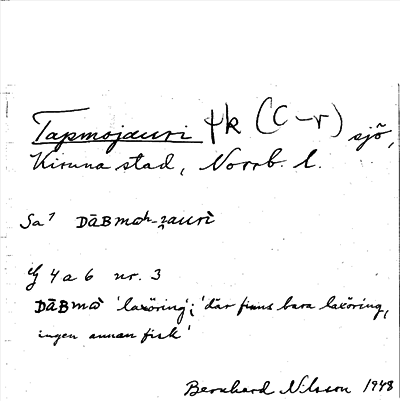 Tapmojauri ψk (C-r) sjö,
Kiruna stad, Norrb. l.
Sa' DāBmαh-ʒaurì
Ef 4 a 6 nr. 3
DāBmὰ 'laxöring'; 'där finns bara laxöring,
ingen annan fisk'
Bernhard Nilsson 1948